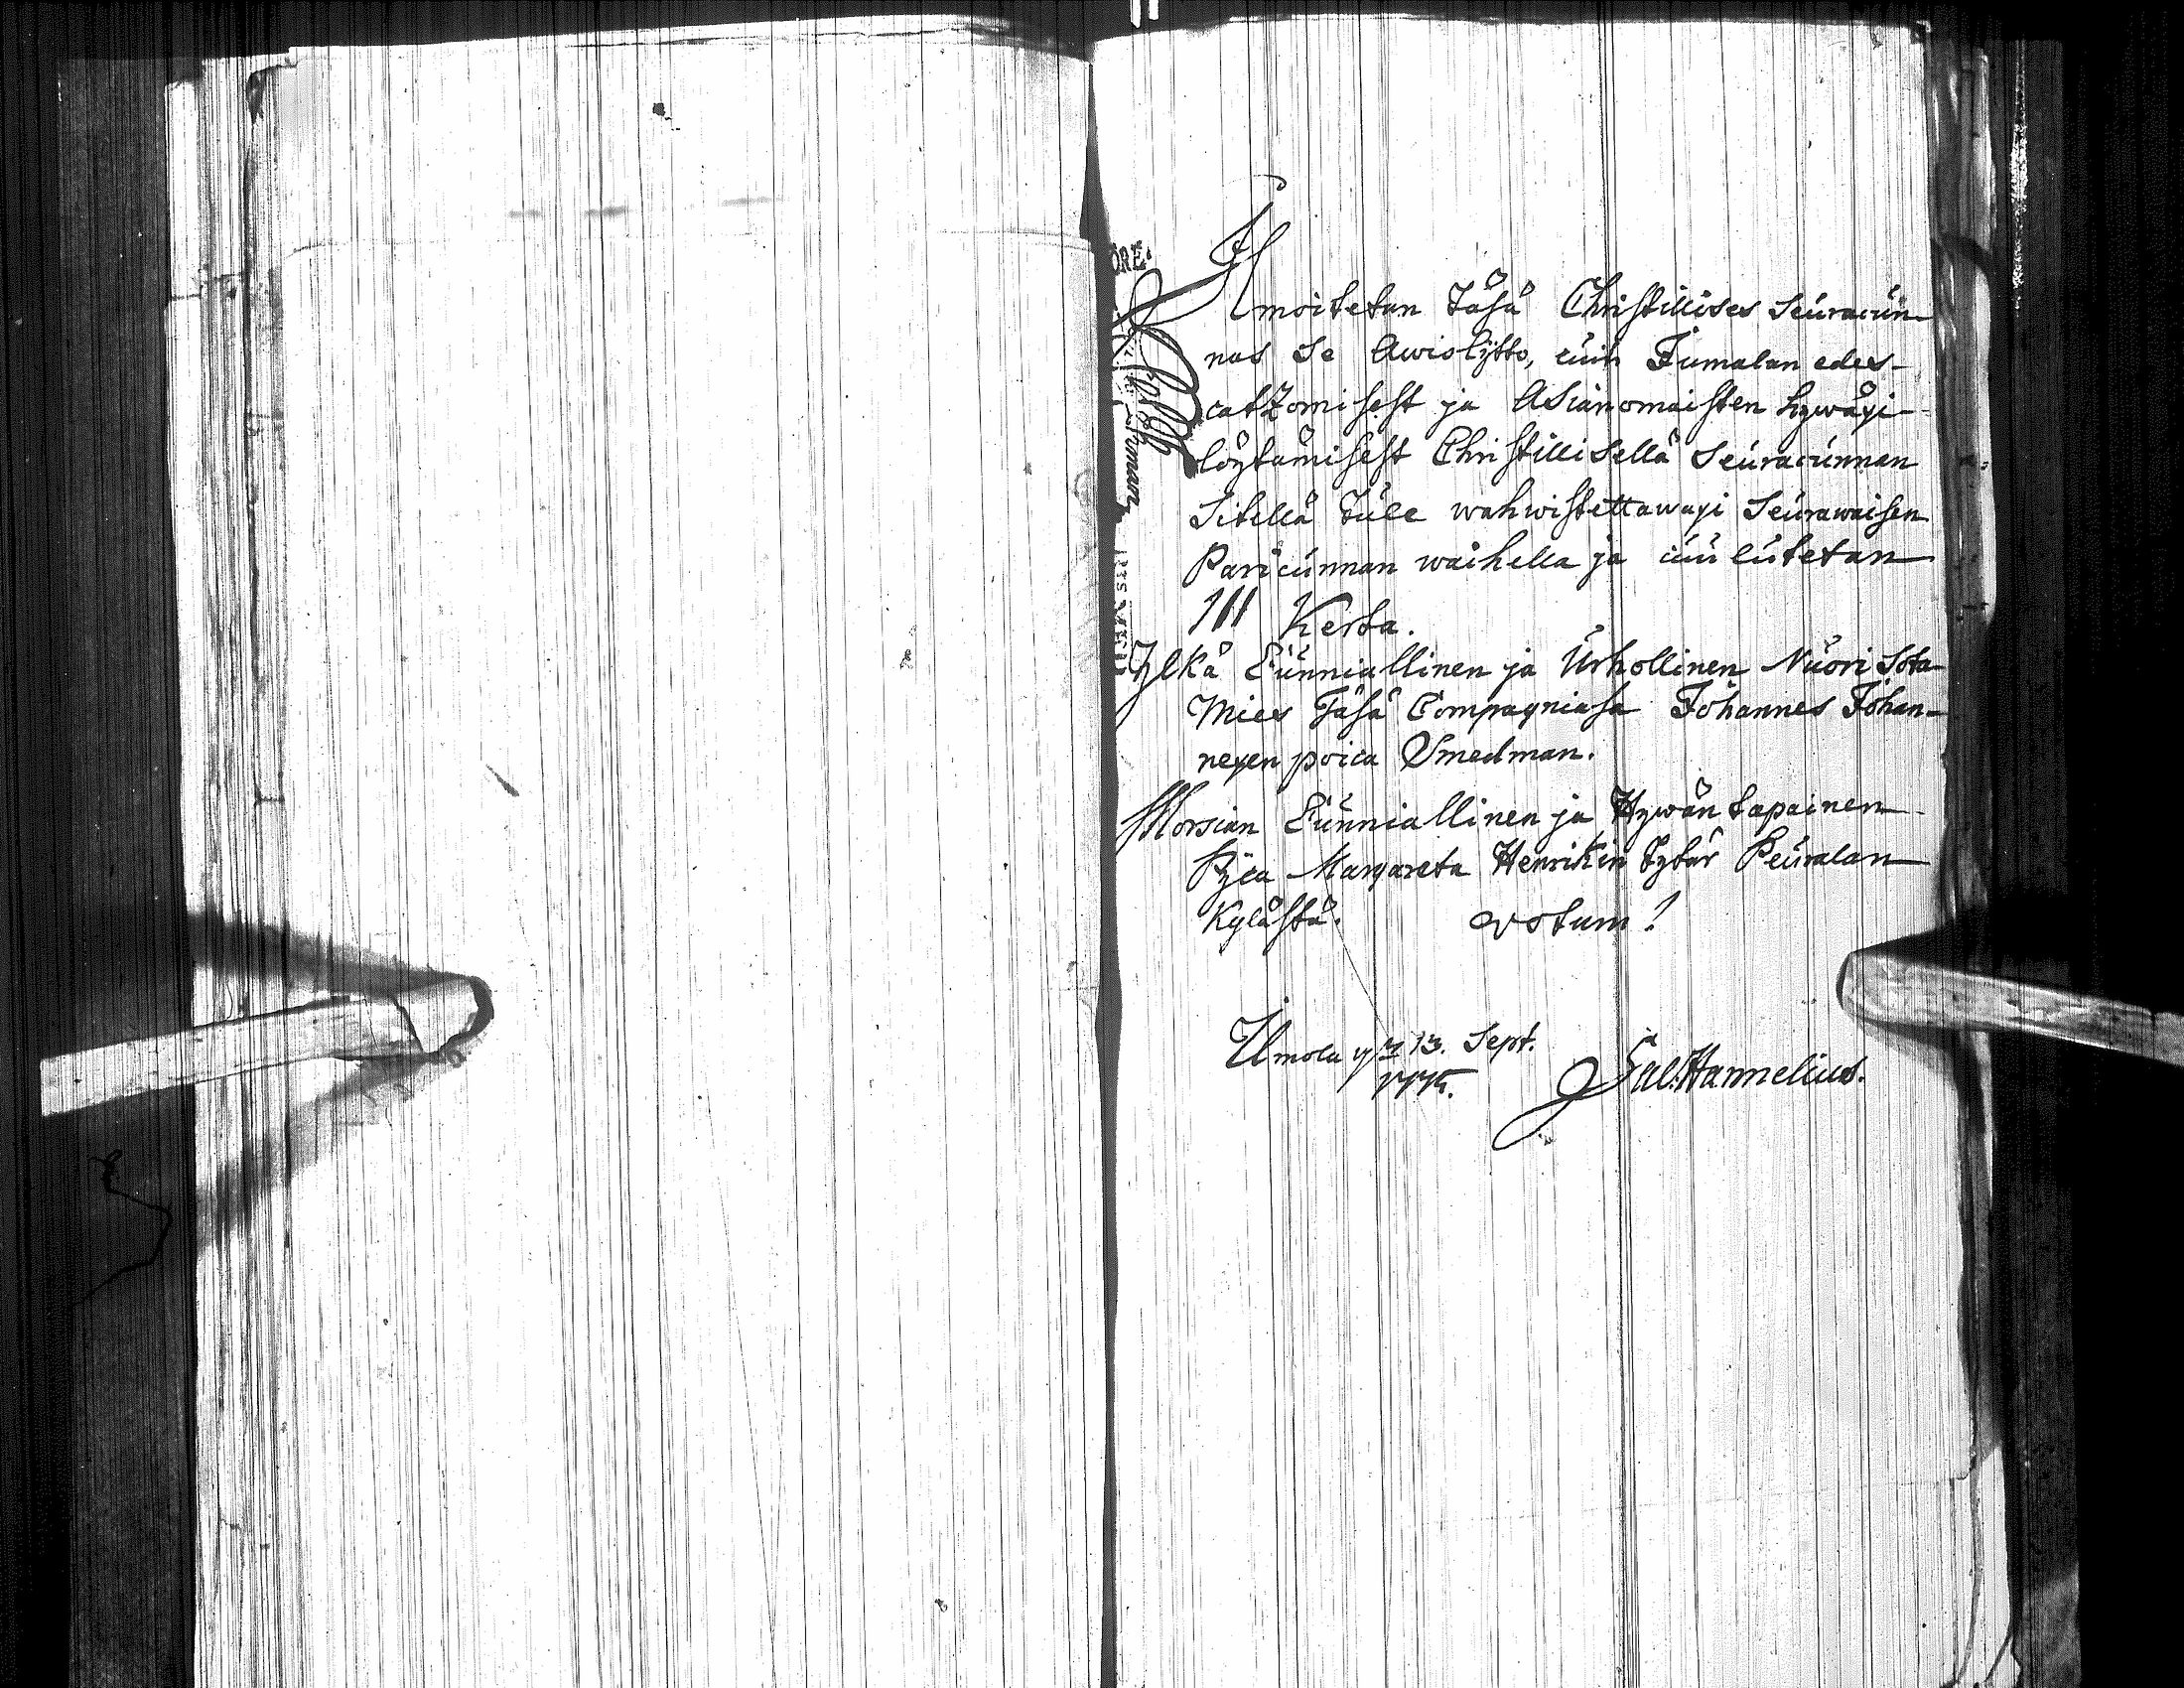 Ilmoitetan täsä Christillises Seuracun-
nas se Awiolijtto, cuin Jumalan edes-
catzomisest ja Asianomaisten hywäxi-
löytämisest Christillisellä Seuracunnan
Sitellä tule wahwistettawaxi Seurawaisen
Paricunnan waihella ja cuulutetan
III Kerta.
Ylkä Cunniallinen ja Urhollinen Nuori Sota
Mies Täsä Compagniasa Johannes Johan-
nexen poica Smedman.
Morsian Cunniallinen ja Hywäntapainen
Pijca Margareta Henrikin tytär Peuralan
Kylästä. Votum!
Ilmola 13. Sept.
1775.
Sal. Hannelius.